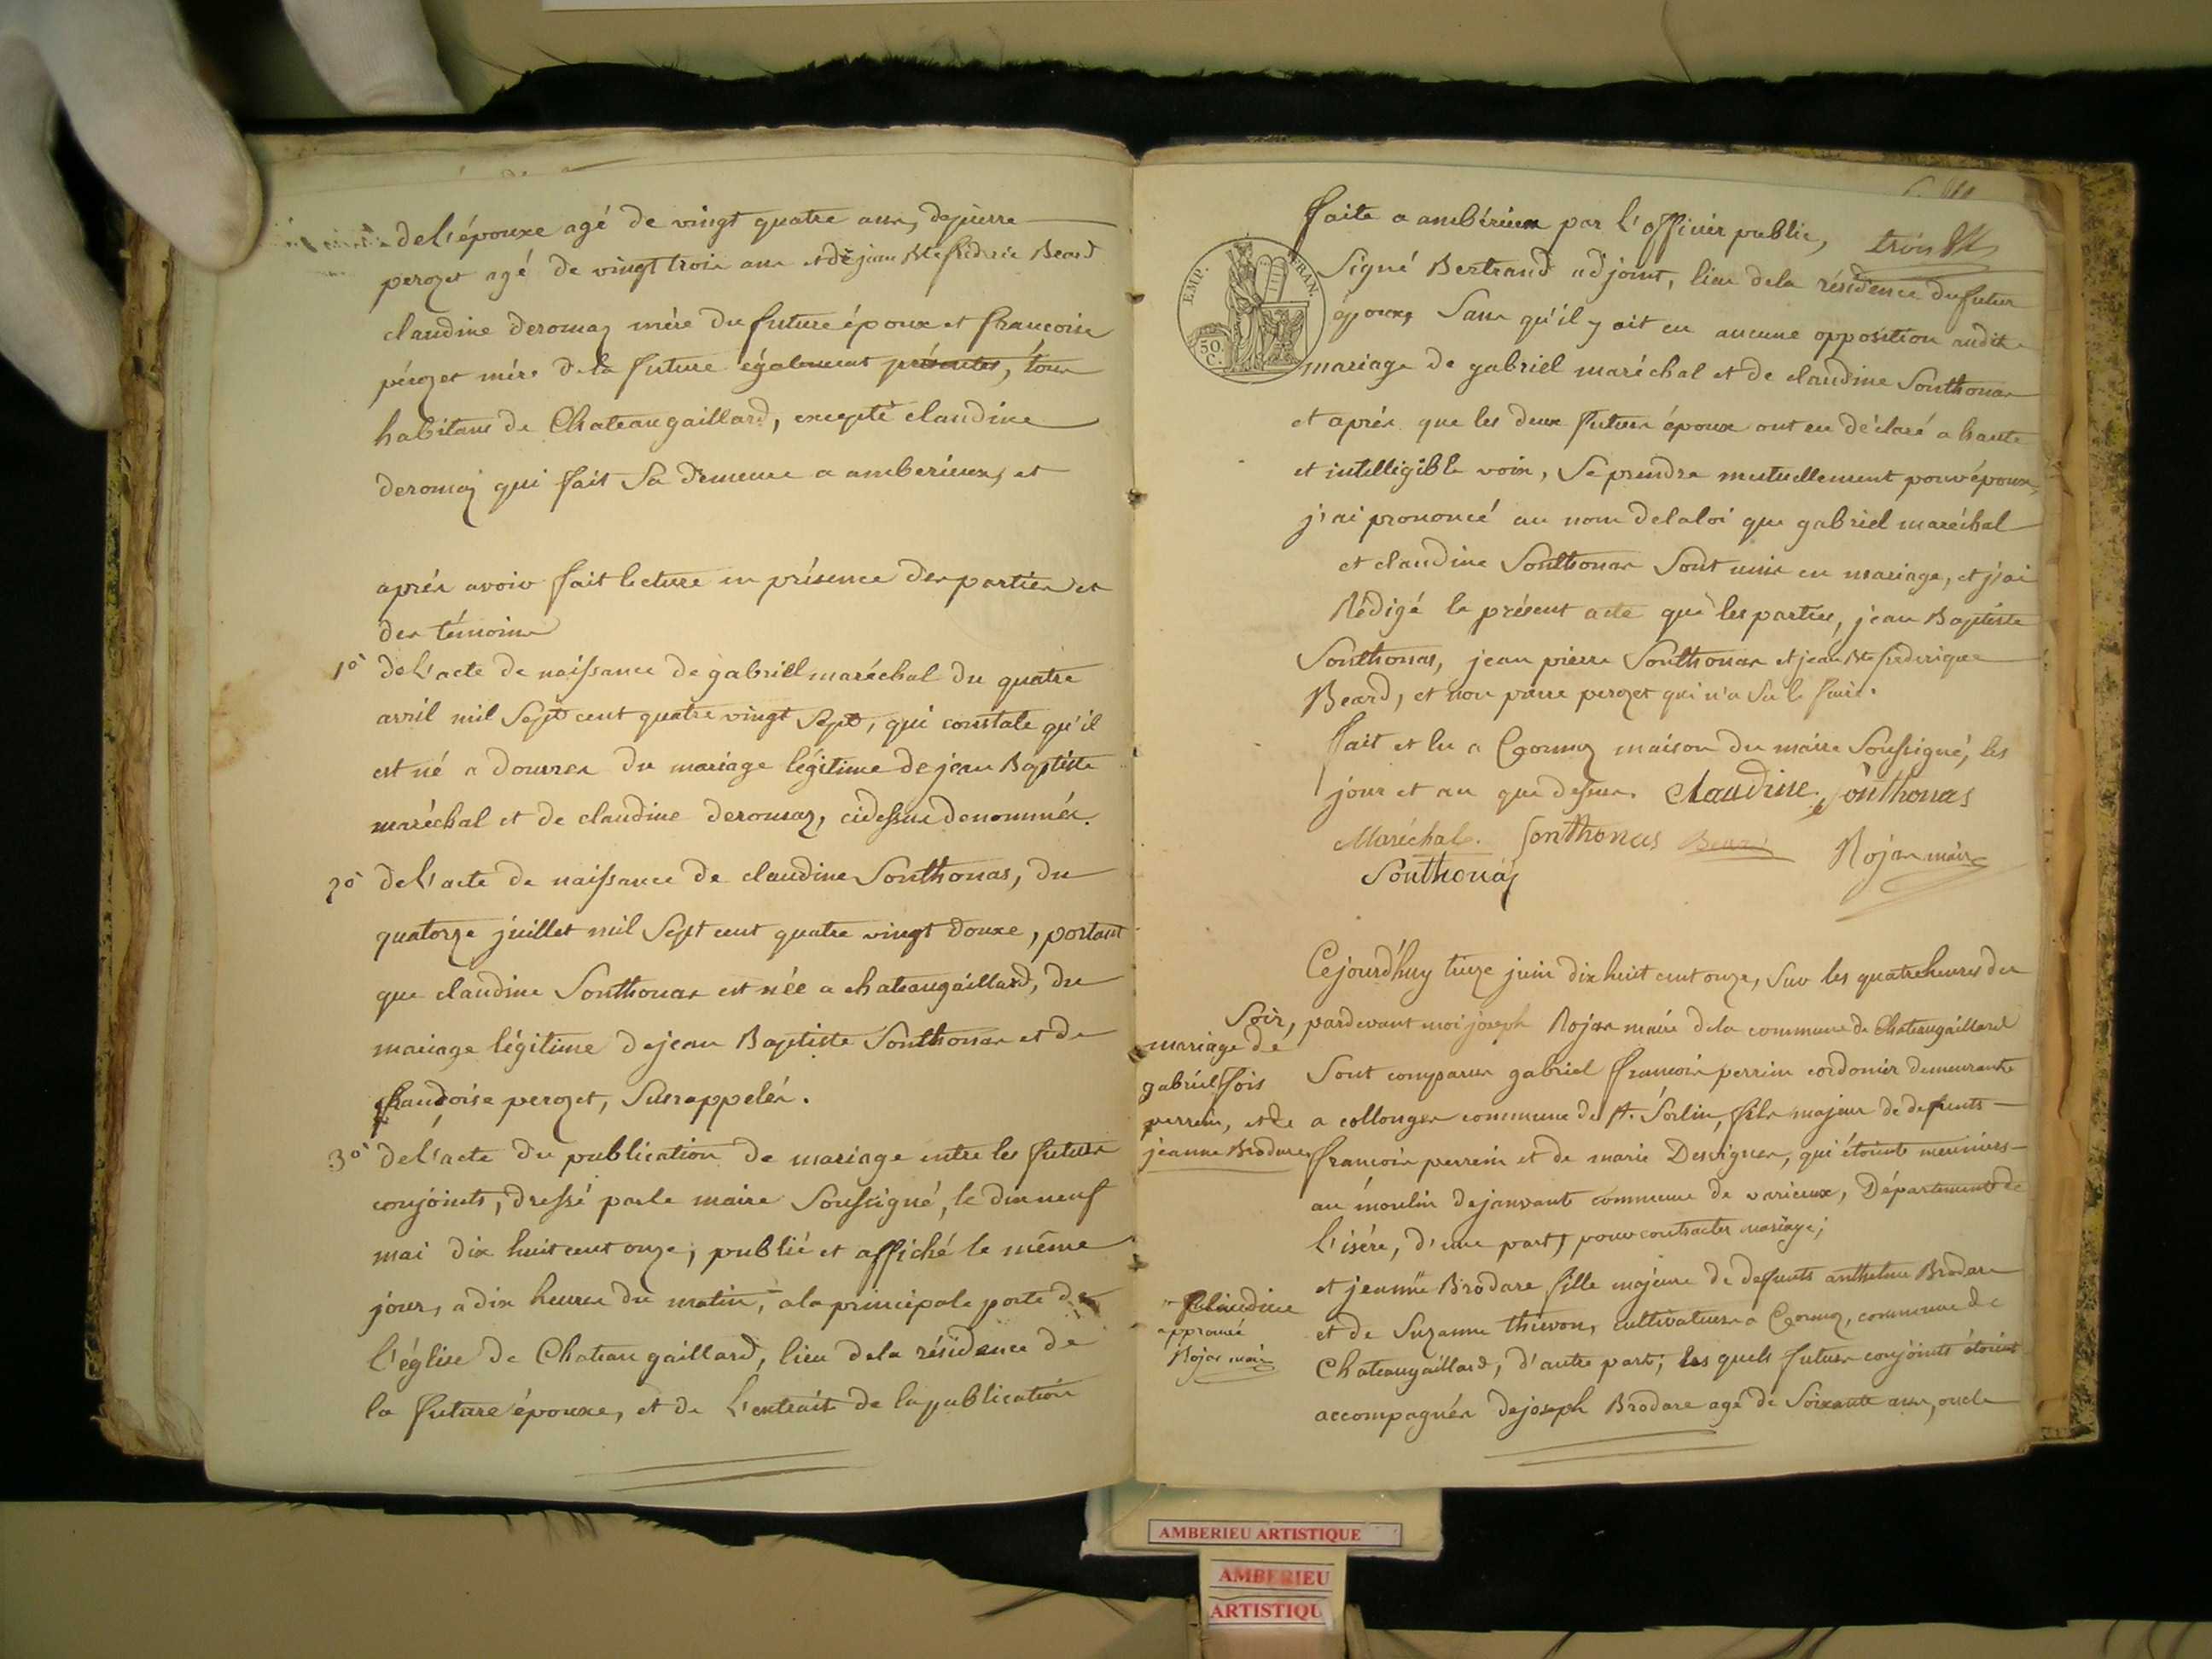 de l'épouxe agé de vingt quatre ans, de pierre
perozet agé de vingt trois ans et de jean Bte frideric Beard
claudine deromaz mére du future époux et francoise
pérozet mére de la future également présentes, tous
habitans de Chateaugaillard, excepté claudine
deromaz qui fait Sa demeure a amberieux, et
aprés avoir fait lecture en présence des parties et
des témoins
1o de l'acte de naissance de gabriel maréchal du quatre
avril mil Sept cent quatre vingt Sept, qui constate qu'il
est né a douvres du mariage légitime de jean Baptiste
maréchal et de claudine deromaz, cidessus denommés.
2o de l'acte de naissance de claudine Sonthonas, du
quatorze juillet mil Sept cent quatre vingt douze, portant
que claudine Sonthonas est née a chateaugaillard, du
mariage légitime de jean Baptiste Sonthonas et de
francoise perozet, Susrappelés.
3o de l'acte du publication de mariage entre les futurs
conjoints, dressé par le maire Soussigné, le dix neuf
mai dix huit cent onze, publié et affiché le même
jour, a dix heures du matin, a la principale porte de
l'église de Chateaugaillard, lieu de la résidence de
la future épouxe, et de l'extrait de la publication
faite a ambérieux par l'officier public, trois
EMP. FRAN.
50. C.
Signé Bertrand adjoint, lieu de la résidence du futur
époux, Sans qu'il y ait eu aucune opposition audit
mariage de gabriel maréchal et de claudine Sonthonas
et aprés que les deux futurs époux ont eu déclaré a haute
et intelligible voix, Se prendre mutuellement pour époux,
j'ai prononcé au nom de la loi que gabriel maréchal
et claudine Sonthonas Sont unis en mariage, et j'ai
Rédigé le présent acte que les parties, jean Baptiste
Sonthonas, jean pierre Sonthonas et jean Bte frederique
Beard, et non pierre perozet qui n'a Su le faire.
fait et lu a Cormoz maison du maire Soussigné, les
jour et an que dessus. claudine Sonthonas
Maréchal. Sonthonas Beard Rojas maire
Sonthonas
Cejourd'huy treize juin dix huit cent onze, Sur les quatre heures du
Soir, pardevant moi joseph Rojas maire de la commune de Chateaugaillard
mariage de
gabriel fois
perrein, et de
jeanne Brodare
Sont comparus gabriel francois perrein cordonier demeurante
a collonges commune de St. Sorlin, fils majeur de defunts
francois perrein et de marie Desvignes, qui étoient meuniers
au moulin de janvant commune de varieux, Département de
l'isére, d'une part, pour contracter mariage;
et jeanne Brodare fille majeure de defunts anthelme Brodare
Claudine
approuvé
Rojas maire
et de Suzanne thévon, cultivateurs a Cormoz, commune de
Chateaugaillard, d'autre part; les quels futurs conjoints étoient
accompagnés de joseph Brodare agé de Soixante ans, oncle
AMBERIEU ARTISTIQUE
AMBERIEU
ARTISTIQU